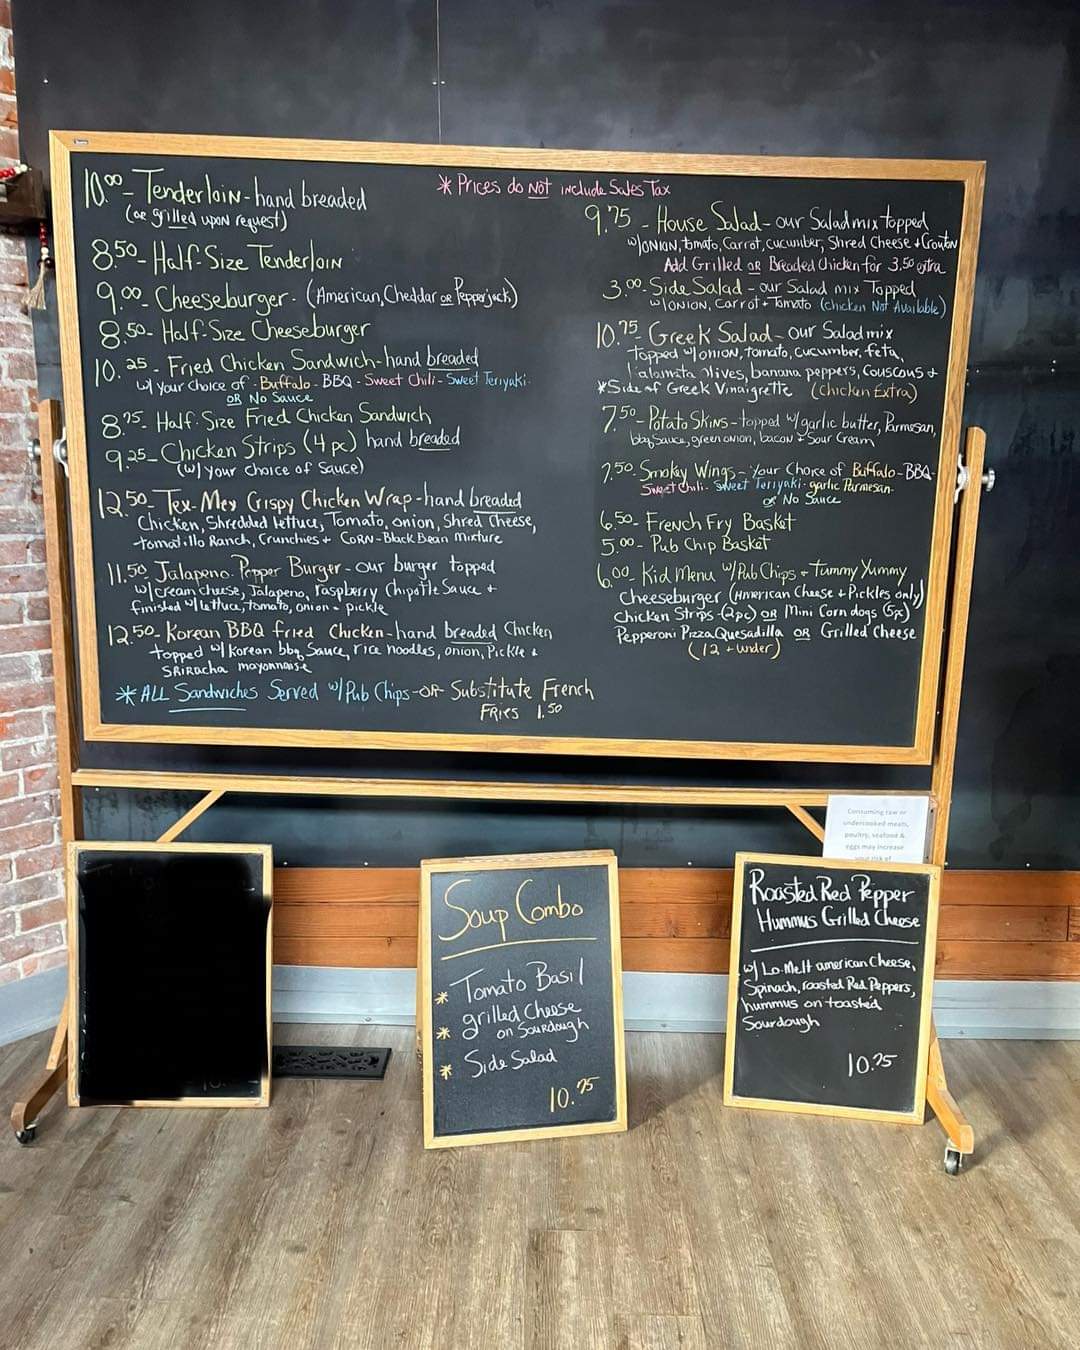 10.00 - Tenderloin - hand breaded
(or grilled upon request)
8.50 - Half-Size Tenderloin
9.00 - Cheeseburger - (American, Cheddar or Pepperjack)
8.50 - Half-Size Cheeseburger
10.25 - Fried Chicken Sandwich - hand breaded
w/ your choice of - Buffalo - BBQ - Sweet Chili - Sweet Teriyaki -
OR No Sauce
8.75 - Half-Size Fried Chicken Sandwich
9.25 - Chicken Strips (4 pc) hand breaded
(w/ your choice of Sauce)
12.50 - Tex-Mex Crispy Chicken Wrap - hand breaded
Chicken, Shredded lettuce, Tomato, onion, Shred Cheese,
tomatillo Ranch, Crunchies + Corn-Black Bean mixture
11.50 - Jalapeno Popper Burger - our burger topped
w/ cream cheese, Jalapeno, raspberry Chipotle Sauce +
finished w/ lettuce, tomato, onion + pickle
12.50 - Korean BBQ fried Chicken - hand breaded Chicken
topped w/ Korean bbq Sauce, rice noodles, onion, Pickle &
SRiRacha mayonnaise
* ALL Sandwiches Served w/ Pub Chips - OR - Substitute French
Fries 1.50
* Prices do Not include Sales Tax
9.75 - House Salad - our Salad mix topped
w/ ONION, tomato, Carrot, cucumber, Shred Cheese + Crouton
Add Grilled or Breaded Chicken for 3.50 extra
3.00 - Side Salad - our Salad mix Topped
w/ ONION, Carrot + Tomato (Chicken Not Available)
10.75 - Greek Salad - our Salad mix
topped w/ onion, tomato, cucumber, feta,
Olives, banana peppers, Couscous +
* Side of Greek Vinaigrette (Chicken Extra)
7.50 - Potato Skins - topped w/ garlic butter, Parmesan,
bbq Sauce, green onion, bacon + Sour Cream
7.50 - Smokey Wings - Your Choice of Buffalo - BBQ -
Sweet Chili - Sweet Teriyaki - garlic Parmesan -
or No Sauce
6.50 - French Fry Basket
5.00 - Pub Chip Basket
6.00 - Kid Menu w/ Pub Chips + Tummy Yummy
Cheeseburger (American Cheese + Pickles only)
Chicken Strips - (2pc) OR Mini Corn dogs (5pc)
Pepperoni Pizza Quesadilla OR Grilled Cheese
(12 + under)
Consuming raw or
undercooked meats,
poultry, seafood &
eggs may increase
your risk of
10.
Soup Combo
* Tomato Basil
* grilled Cheese
on Sourdough
* Side Salad
10.75
Roasted Red Pepper
Hummus Grilled Cheese
w/ Lo-Melt american Cheese,
Spinach, roasted Red Peppers,
hummus on toasted
Sourdough
10.75